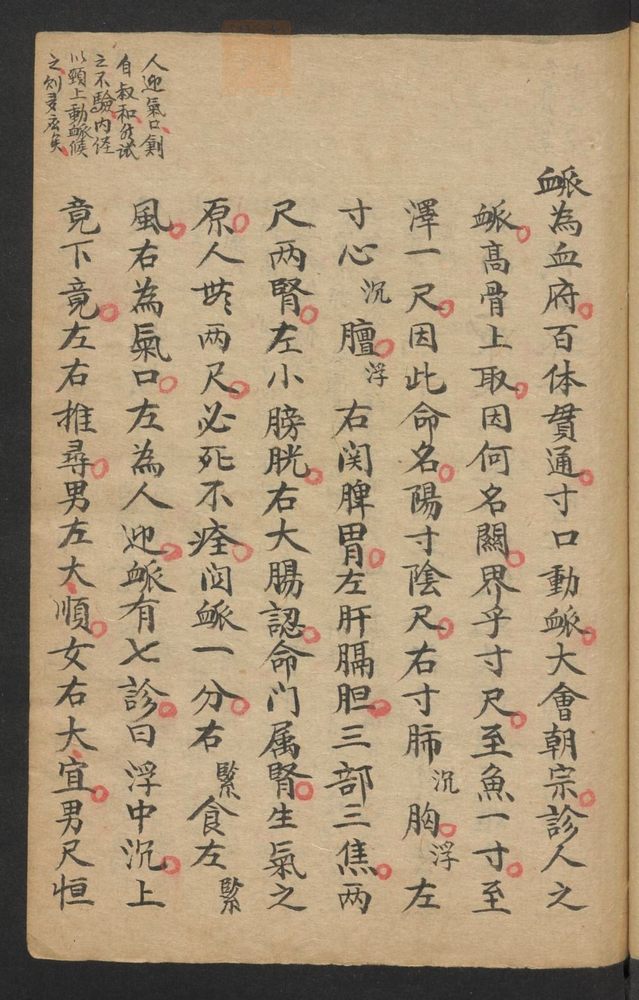 衇為血府百体貫通寸口動衇大會朝宗診人之
衇高骨上取因何名關界乎寸尺至魚一寸至
澤一尺因此命名陽寸陰尺右寸肺沉胸浮左
寸心沉膻浮右関脾胃左肝膈胆三部三焦两
尺两腎左小膀胱右大腸認命门属腎生氣之
原人無两尺必死不痊関衇一分右緊食左緊
風右為氣口左為人迎衇有七診曰浮中沉上
竟下竟左右推尋男左大順女右大宜男尺恒
人迎氣口創
自叔和試
之不驗内经
以頸上動衇候
之則应矣